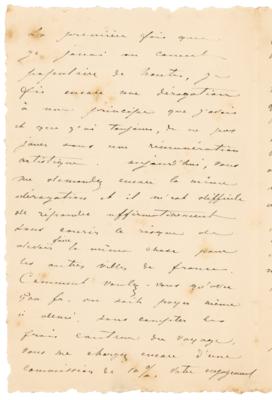 La première fois que
je jouai au concert
populaire de Nantes, je
fis encore une dérogation
à mon principe que j'avais
et que j'ai toujours, de ne pas
jouer sans une rémunération
artistique. Aujourd'hui, vous
me demandez encore la même
dérogation, et il m'est difficile
de répondre affirmativement
sans courir le risque de
devoir faire la même chose pour
les autres villes de France.
Comment voulez-vous qu'
on soit payé même
à demi, sans compter les
frais du voyage,
vous me chargez encore d'une
commission de 10%. Votre engagement